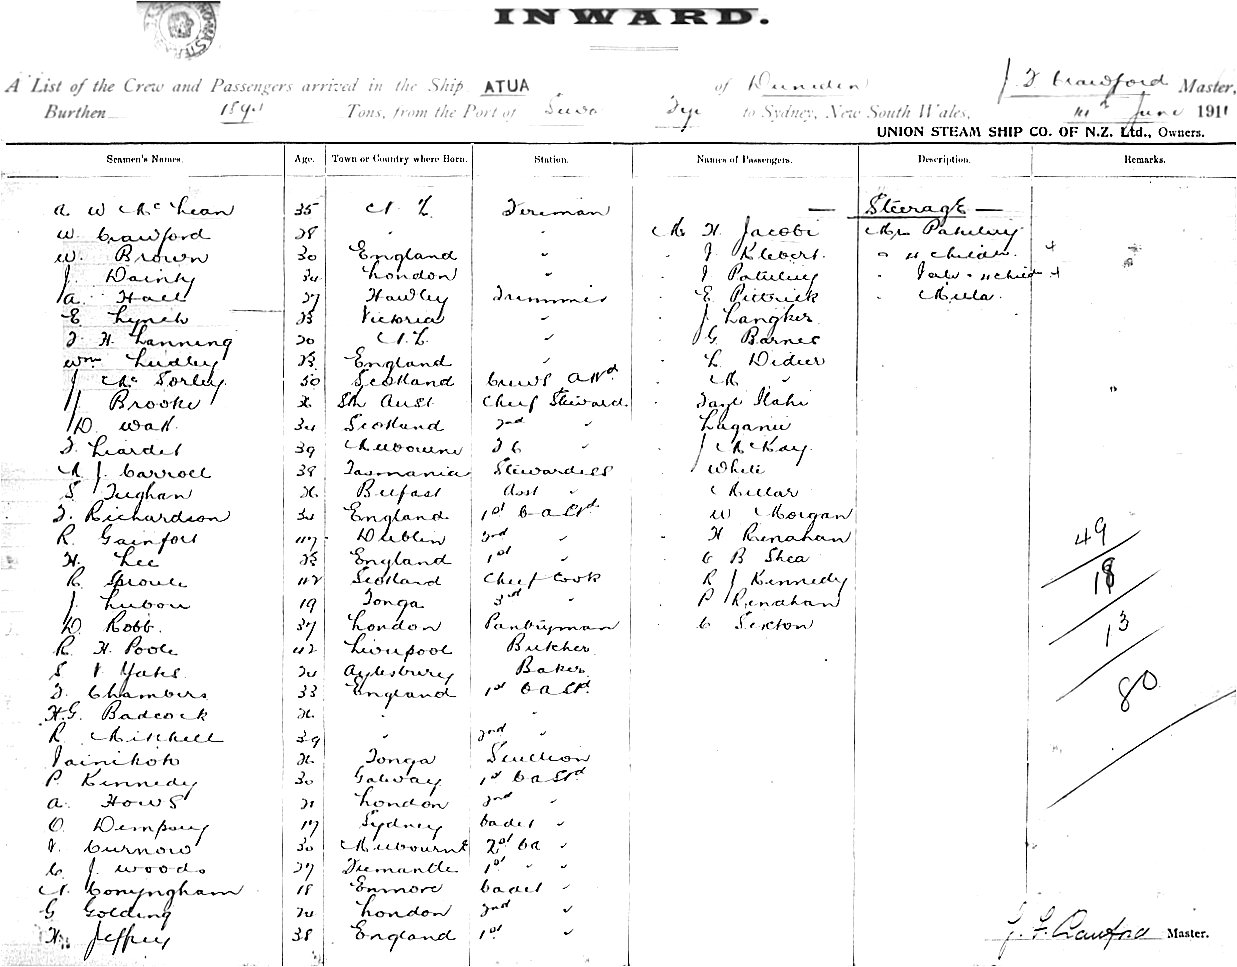 INWARD.
A List of the Crew and Passengers arrived in the Ship ATUA of Dunedin J F Crawford Master,
Burthen Tons, from the Port of Suva Fiji to Sydney, New South Wales, June 1911
UNION STEAM SHIP CO. OF N.Z. Ltd., Owners.
Seamen's Names. Age. Town or Country where Born. Station. Names of Passengers. Description. Remarks.
A W McLean 35 N Z Fireman — Steerage —
W Crawford 28 " " M H Jacobi Mr
W Brown 30 England " J Klebert " child
J Dainty London " J
A Hall 27 Trimmer E Pittrick "
E Lynch 23 Victoria " J Langker
F H Lanning 20 N.Z. " G Barnes
Wm Lidley 23 England " L Didier
J McSorley 50 Scotland Crews Attd M "
J Brooke Sth Aust Chief Steward
D Watt 34 Scotland 2nd "
F Liardet 39 Melbourne F C " J McKay
M J Carroll 38 Tasmania Stewardess White
S Tughan Belfast Asst " Millar
F Richardson England 1st W Morgan
R Gainfort 47 Dublin 2nd " H Renahan 49
H Lee 23 England 1st " C B Shea
R Sproule 42 Scotland Chief Cook R J Kennedy 18
J 19 Tonga 3rd " P Renahan
D Robb 37 London Pantryman C Sexton 13
R H Poole 42 Liverpool Butcher
S V Yates Aylesbury Baker
F Chambers 33 England 1st 80
H.G. Badcock " "
R Mitchell 39 " 2nd
Tonga Scullion
P Kennedy 30 Galway 1st
A Hows 21 London 2nd "
O Dempsey 17 Sydney Cadet "
V Curnow 30 Melbourne "
C J Woods 27 Fremantle 1st "
N Conyngham 18 Enmore Cadet "
G Golding London 2nd "
H. Jeffrey 38 England 1st " J. F. Crawford Master.